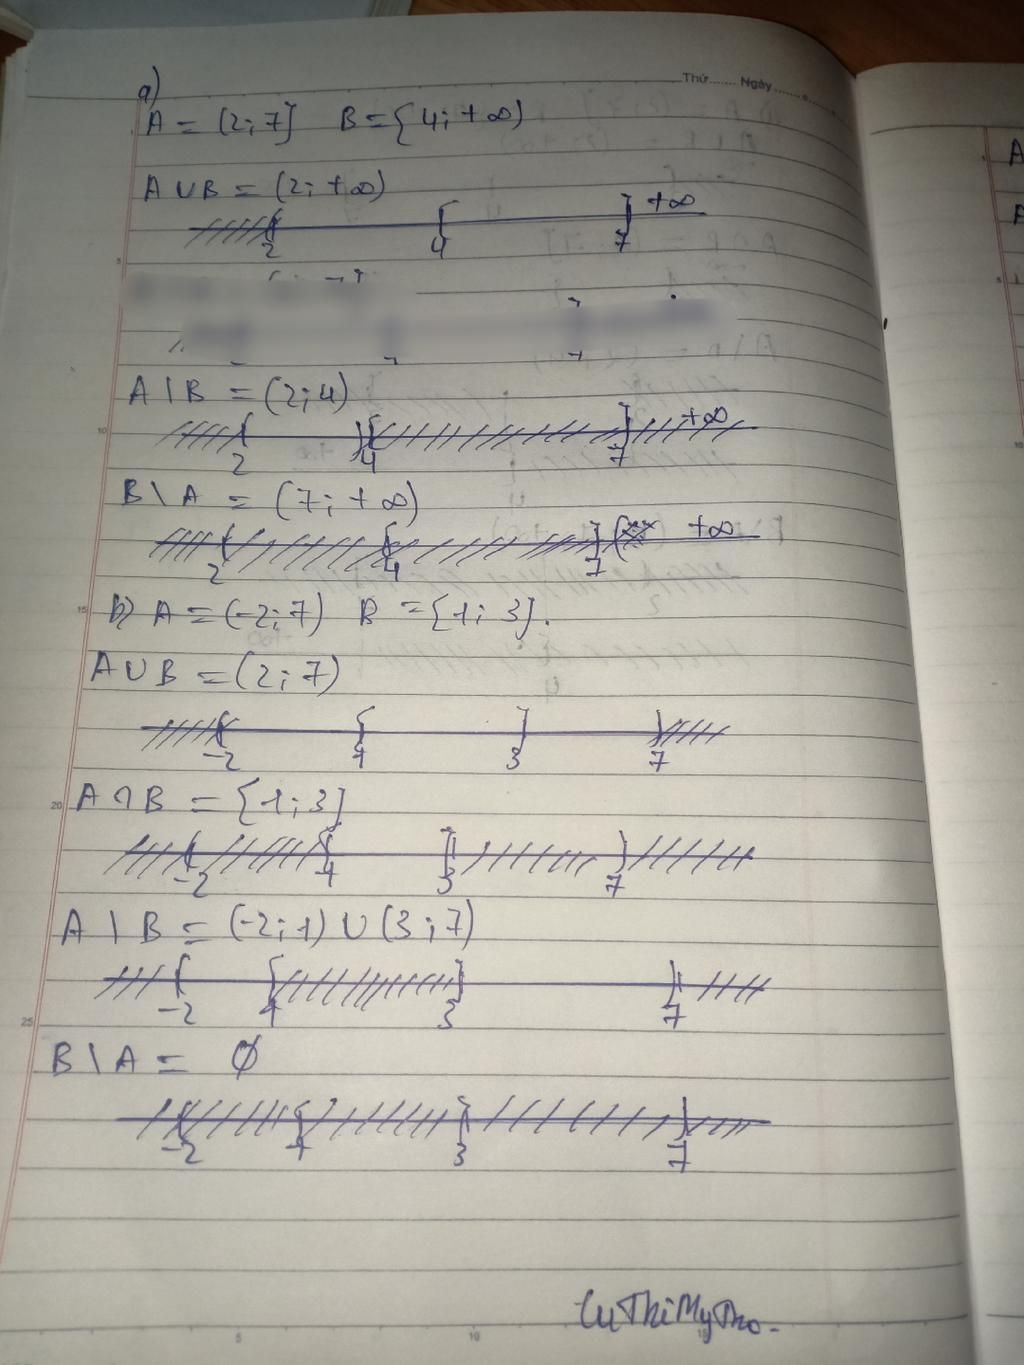 Thứ....... Ngày.............
a)
A = (2; 7] B = [4; +∞)
A ∪ B = (2; +∞)
2 4 7 +∞
A \ B = (2; 4)
2 4 7 +∞
B \ A = (7; +∞)
2 4 7 +∞
b) A = (-2; 7) B = [1; 3].
A ∪ B = (2; 7)
-2 1 3 7
A ∩ B = [1; 3]
-2 1 3 7
A \ B = (-2; 1) ∪ (3; 7)
-2 1 3 7
B \ A = ∅
-2 1 3 7
5 10 15